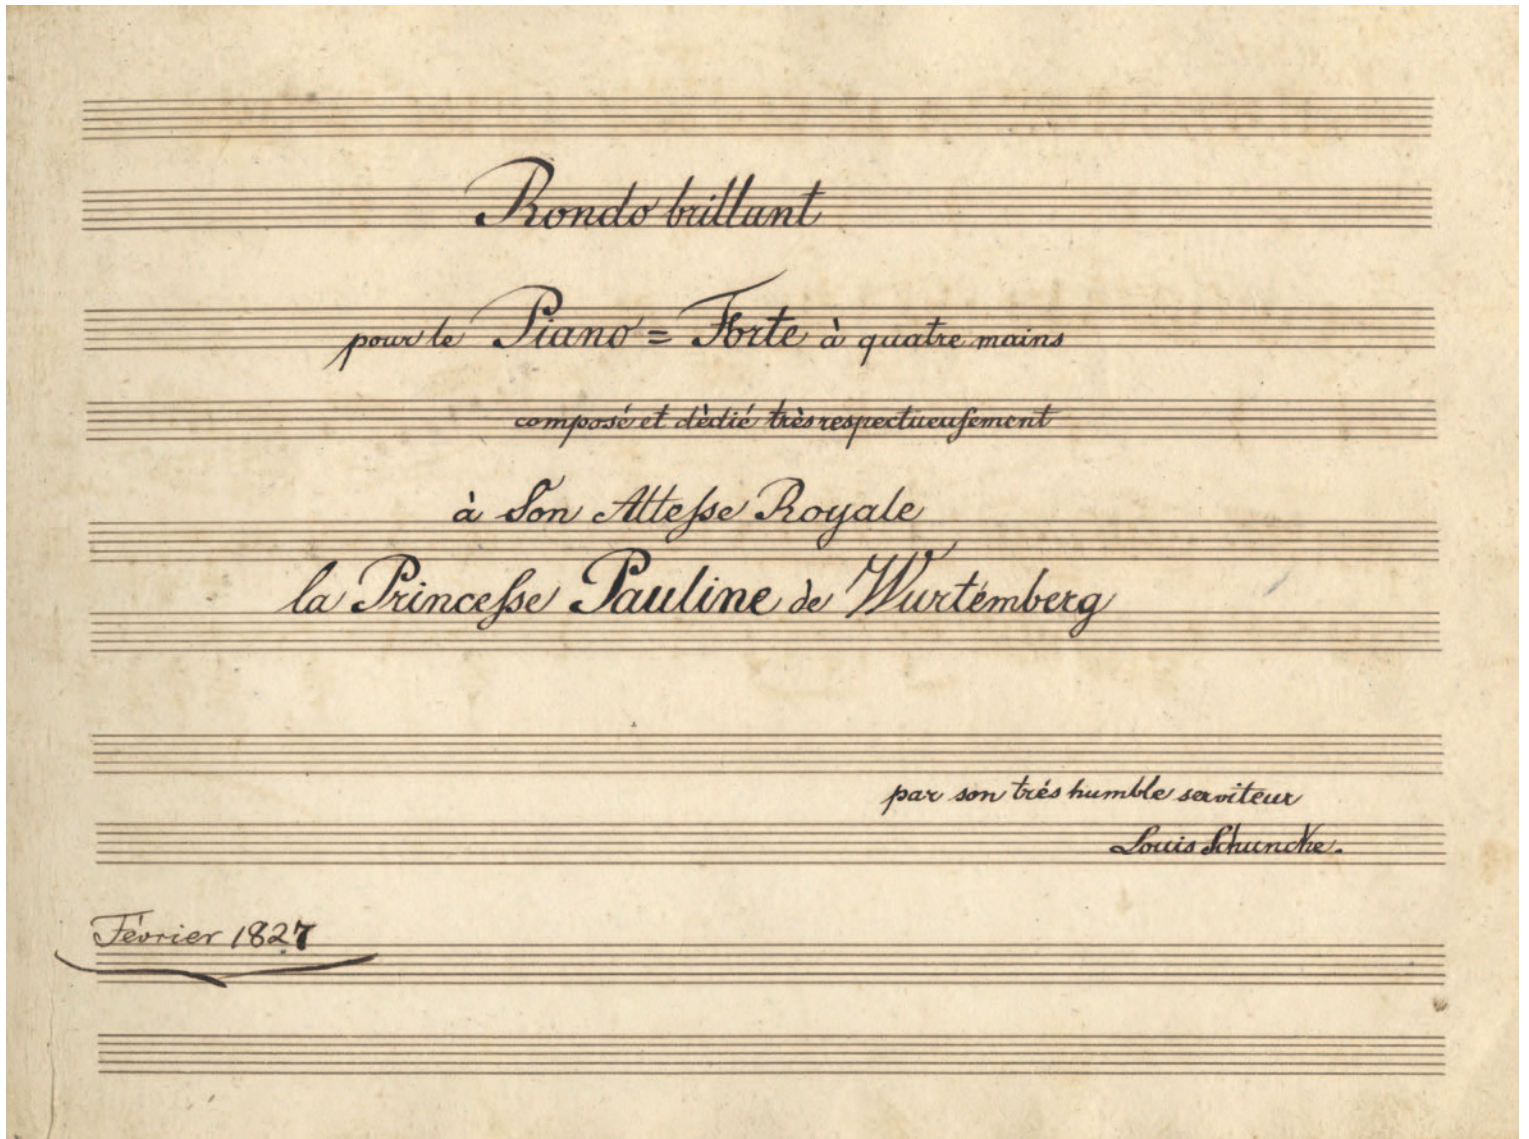 Rondo brillant
pour le Piano = Forte à quatre mains
composé et dèdié très respectueusement
à Son Altesse Royale
la Princesse Pauline de Wurtémberg
par son trés humble serviteur
Louis Schuncke.
Février 1827